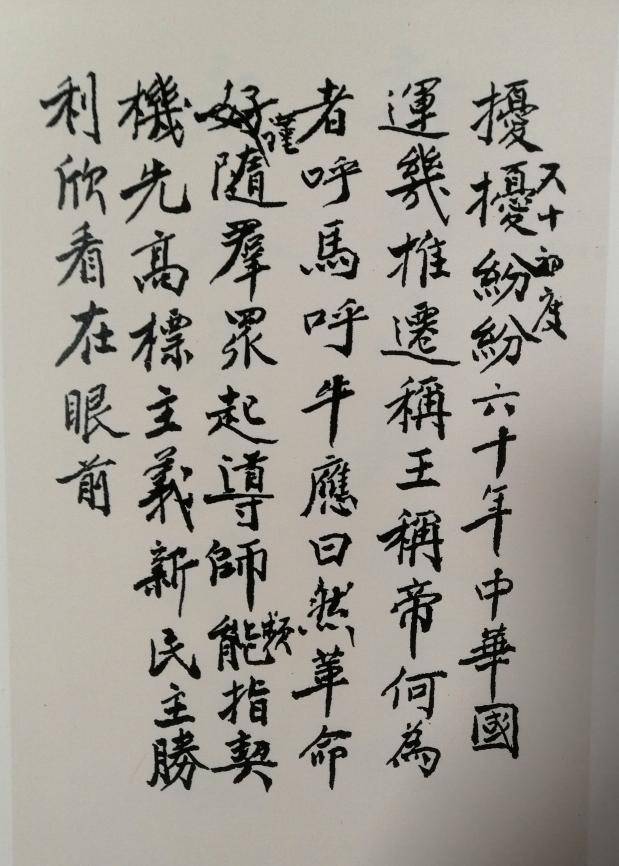 擾擾紛紛六十年中華國
十初度
運幾推遷稱王稱帝何為
者呼馬呼牛應曰然革命
謹
好隨羣眾起導師能指契
頻
機先高標主義新民主勝
利欣看在眼前